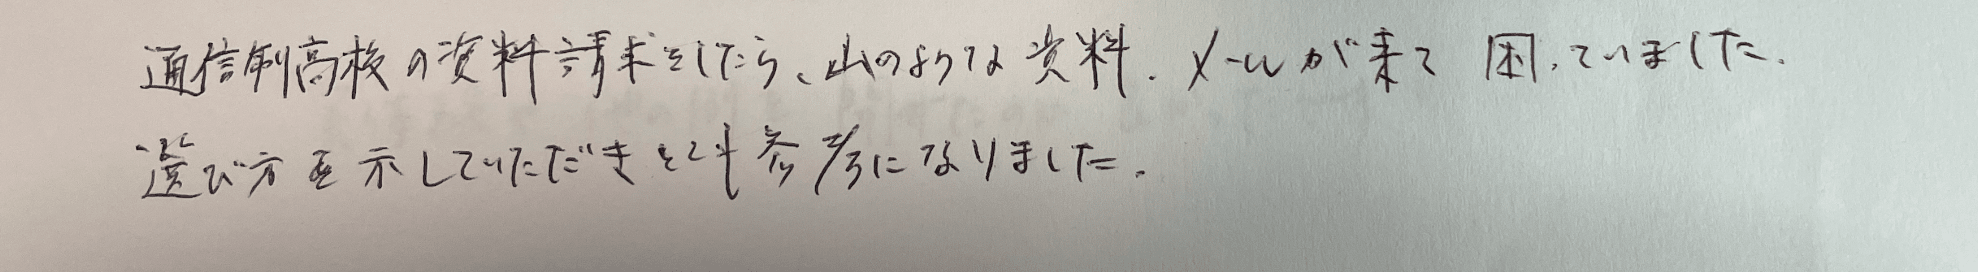 通信制高校の資料請求をしたら、山のような資料.メールが来て 困っていました.
選び方を示していただきとても参考になりました.